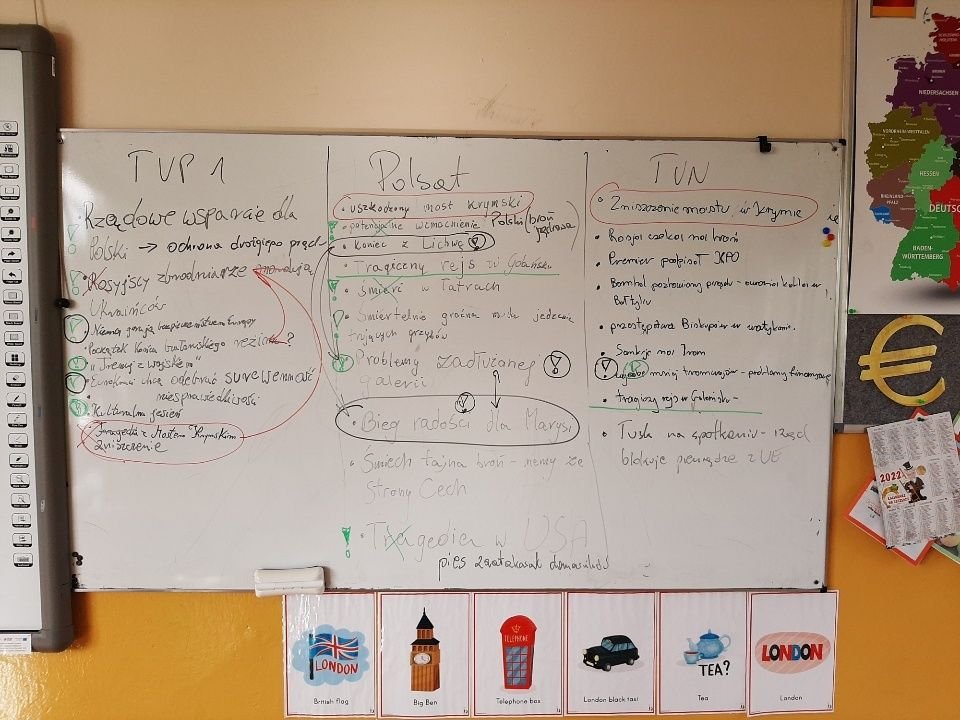 TVP 1
Rządowe wsparcie dla
Polski → ochrona drożejącego prądu
Rosyjscy zbrodniarze mordują
Ukraińców
Niemcy grożą bezpieczeństwem Europy
Początek końca reżimu?
"Trenuj z wojskiem"
Eurokraci chcą odebrać suwerenność
niesprawiedliwości
Kulturalna jesień
Tragedia z Mostem Krymskim
zniszczenie
Polsat
uszkodzony most krymski
potencjalne wzmocnienie Polski (broń
jądrowa
Koniec z Lichwą
Tragiczny rejs w Gdańsku
Śmierć w Tatrach
Śmiertelnie groźna moda jedzenia
trujących grzybów
Problemy zadłużonej
galerii
Bieg radości dla Marysi
Śmiech tajna broń - memy ze
strony Czech
Tragedia w USA
pies zaatakował domowników
TVN
Zniszczenie mostu w Krymie
Rosja czeka na broń
Premier podpisał KPO
Bornholm pozbawiony prądu - awaria kabla w
Bałtyku
przestępstwa Biskupów w watykanie.
Sankcje na Iran
mniej tramwajów - problemy finansowe
tragiczny rejs w Gdańsku -
Tusk na spotkaniu - rząd
blokuje pieniądze z UE
NIEDERSACHSEN
NORDRHEIN-WESTFALEN
HESSEN
RHEINLAND-
PFALZ
DEUTSC
BADEN-
WÜRTTEMBERG
€
2022
LONDON
British flag
Big Ben
TELEPHONE
Telephone box
London black taxi
TEA?
Tea
LONDON
London